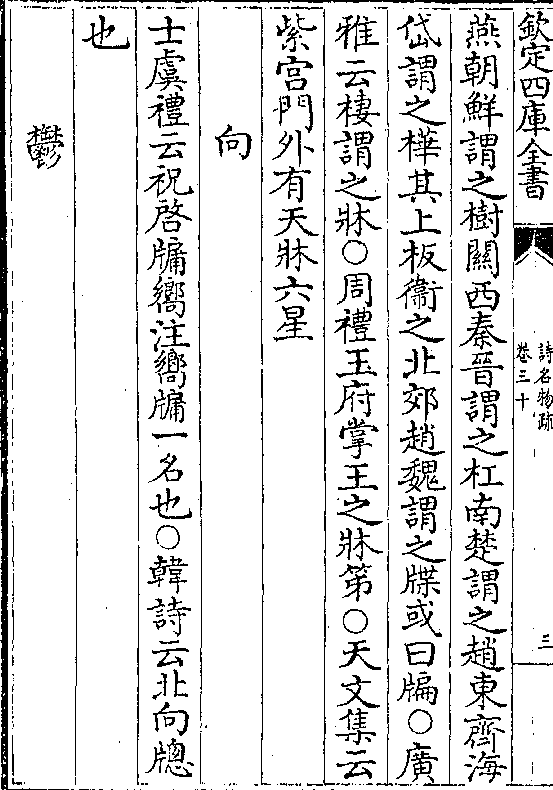 欽定四庫全書
詩名物疏
卷三十
三
燕朝鮮謂之樹關西秦晉謂之杠南楚謂之趙東齊海
岱謂之樺其上板衞之北郊趙魏謂之牒或曰牑○廣
雅云棲謂之牀○周禮玉府掌王之牀笫○天文集云
紫宮門外有天牀六星
向
士虞禮云祝啓牖嚮注嚮牖一名也○韓詩云北向牕
也
鬱